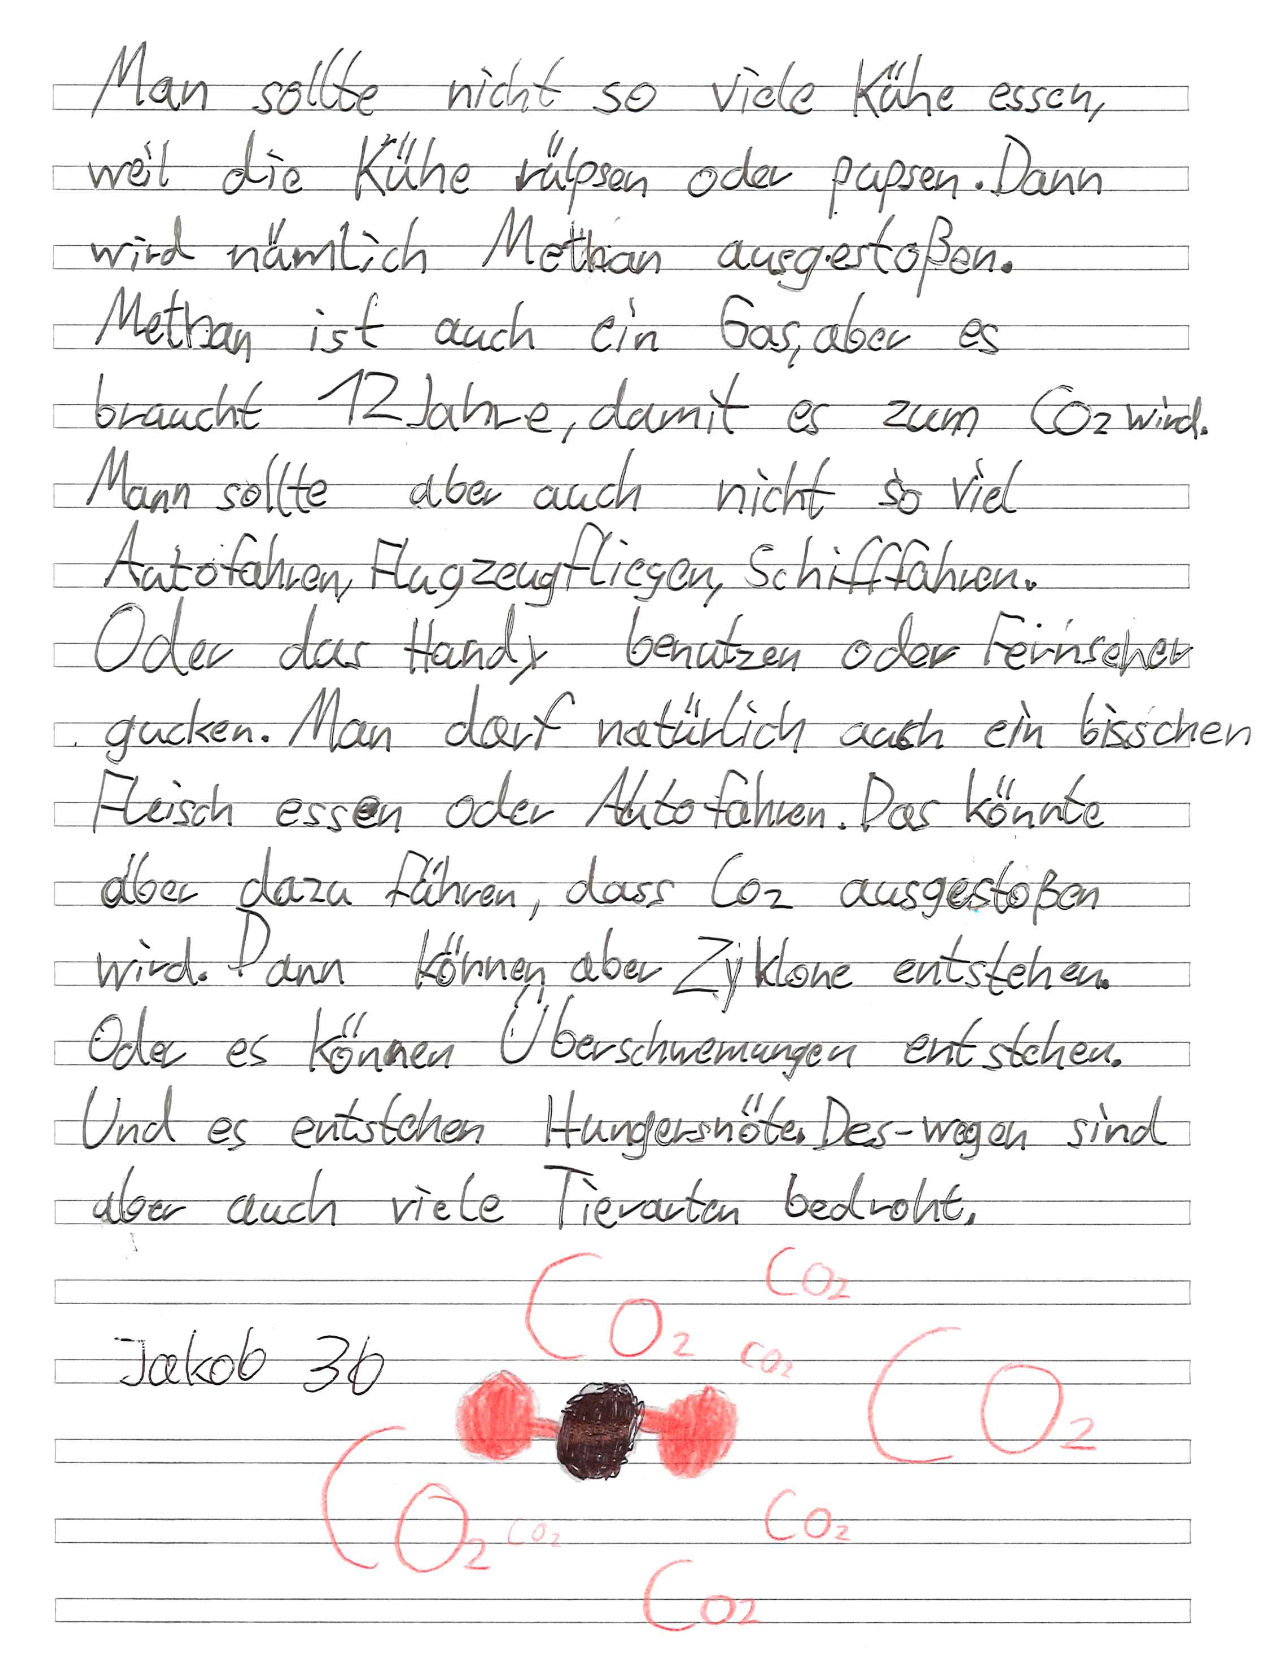 Man sollte nicht so viele Kühe essen,
weil die Kühe rülpsen oder pupsen. Dann
wird nämlich Methan ausgestoßen.
Methan ist auch ein Gas, aber es
braucht 12 Jahre, damit es zum CO2 wird.
Mann sollte aber auch nicht so viel
Autofahren, Flugzeugfliegen, Schifffahren.
Oder das Handy benutzen oder Fernseher
gucken. Man darf natürlich auch ein bisschen
Fleisch essen oder Autofahren. Das könnte
aber dazu führen, dass Co2 ausgestoßen
wird. Dann können aber Zyklone entstehen.
Oder es können Überschwemungen entstehen.
Und es entstehen Hungersnöte. Des-wegen sind
aber auch viele Tierarten bedroht.
CO2 CO2
Jakob 3b CO2
CO2
CO2 CO2 CO2
CO2